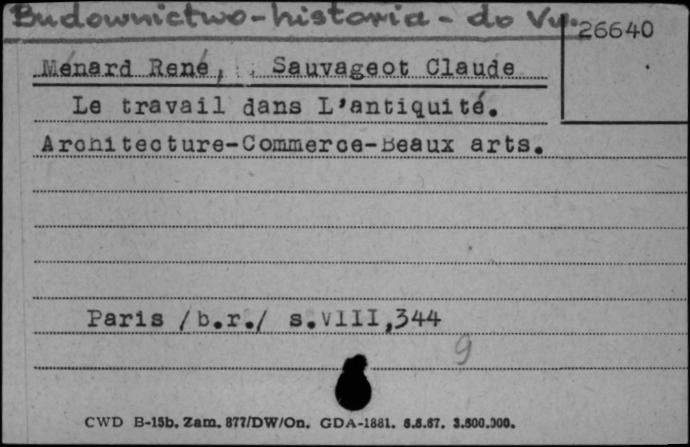 Budownictwo-historia - do Vw.
26640
Ménard René, Sauvageot Claude
Le travail dans L'antiquité.
Architecture-Commerce-Beaux arts.
Paris /b.r./ s.VIII,344
9
CWD B-15b. Zam. 877/DW/On. GDA-1881. 6.6.67. 3.500.000.